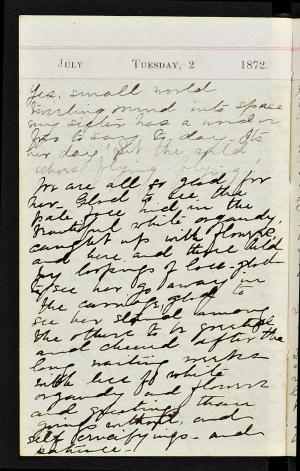 July Tuesday, 2 1872.
Yes, small world
mind into space
my sister has a word or
two to say to day. Its
her day! Let the wild
echoes flying, flying!
We are all so glad for
her. Glad to see the
pale face hid in the
beautiful white organdy
caught up with flowers
and here and there held
by loopings of lace. glad
to see her go away in
the carriage, glad to
see her stand among
the others to be
and cheered after the
long waiting weeks
with lace white
organdy and flowers
and greetings than
without, and
self crucifyings and
patience.